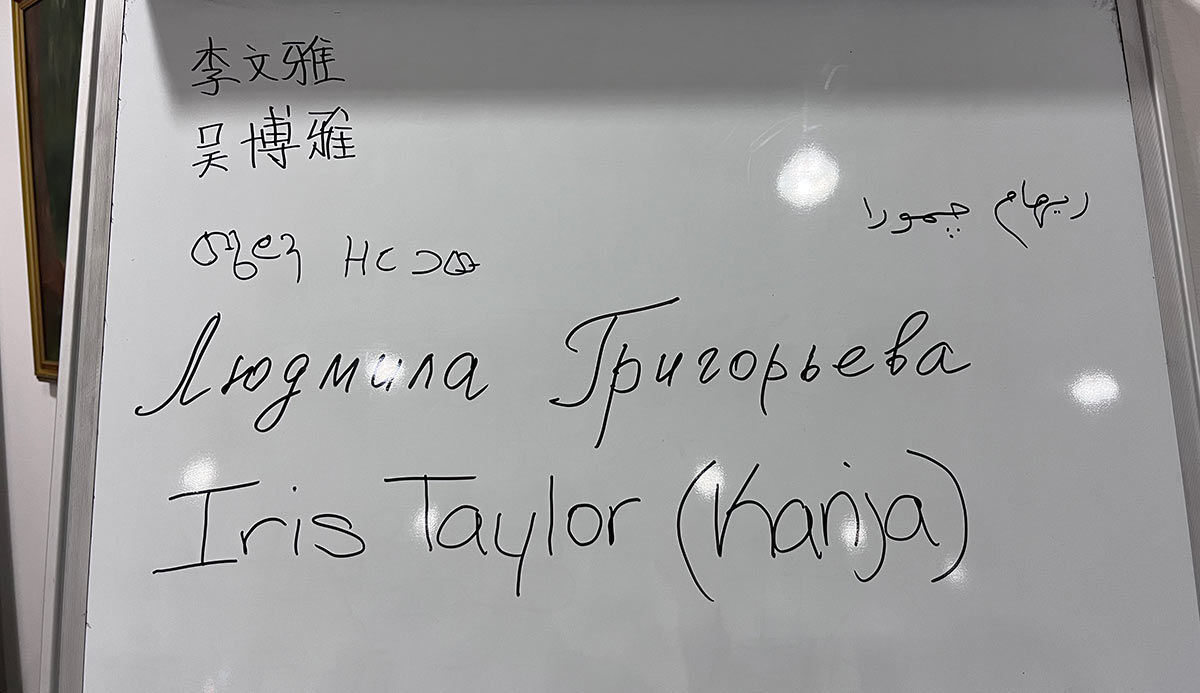 李文雅
吴博雅
ريهام چمورا
Людмила Григорьева
Iris Taylor (Kanja)